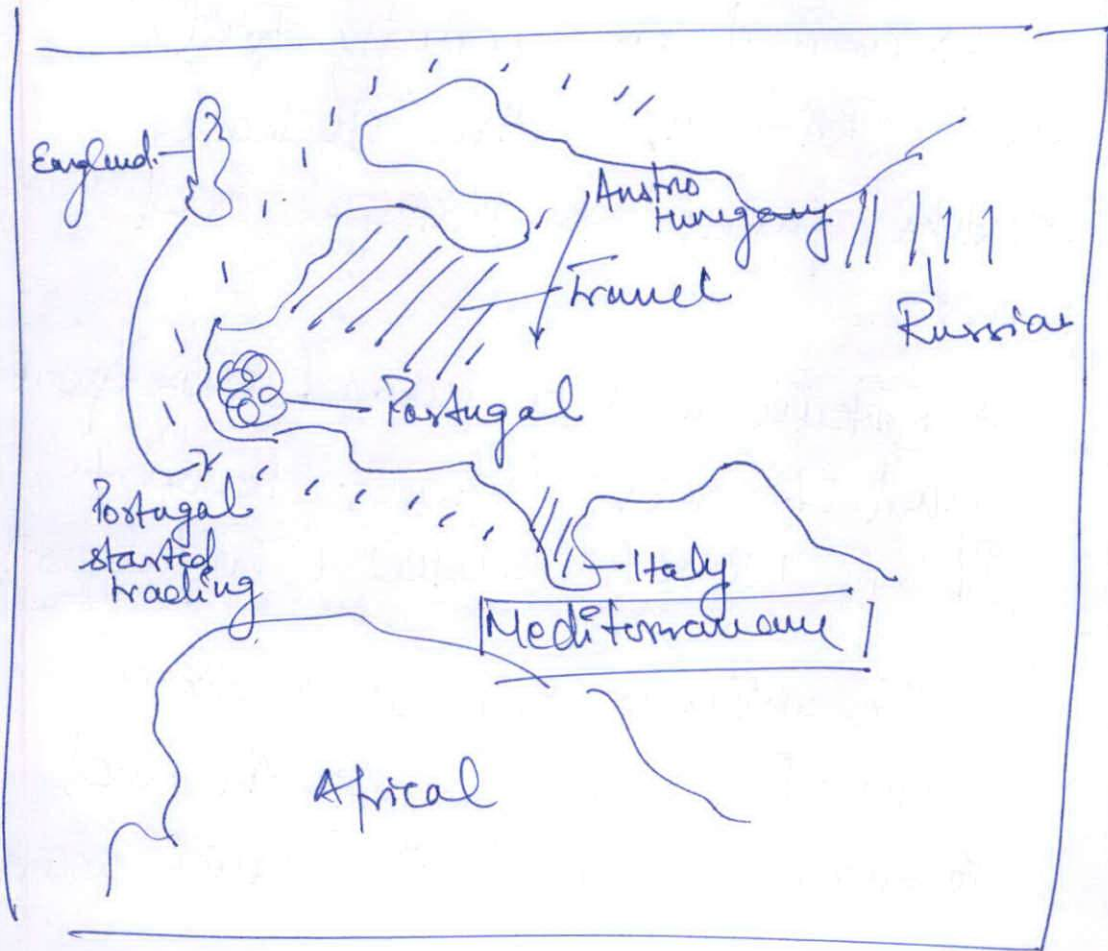 England
Austro
Hungary
Russian
Portugal
Portugal
started
trading
Italy
Mediterranean
Africal